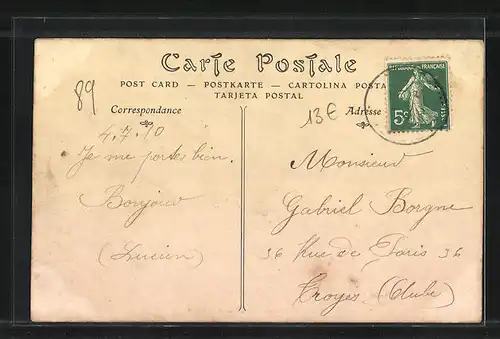 Carte Postale
POST CARD — POSTKARTE — CARTOLINA POSTA
TARJETA POSTAL
89
Correspondance
13€
Adresse
FRANÇAISE
5c
4.7.10
Je me portes bien.
Bonjour
(Lucien)
Monsieur
Gabriel Borgne
36 Rue de Paris 36
Troyes (Aube)